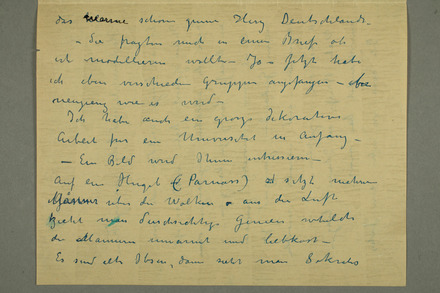 das warme schöne grüne Herz Deutschlands.
– Sie fragten mich in einem Brief ob
ich modellieren wollte. Ja – Jetzt habe
ich eben verschiedene Gruppen angefangen –
neugierig wie es wird –
Ich habe auch ein grosse dekorative
Arbeit für ein Universität in Anfang –
– Ein Bild wird Ihnen interessieren –
Auf ein Hügel (Parnass) sitzt mehre
Männer über die Wolken aus der Luft
sieht man durchsichtige
die Männern umarmt und liebkost –
Es sind alte Ibsen, dann sieht man Sokrates